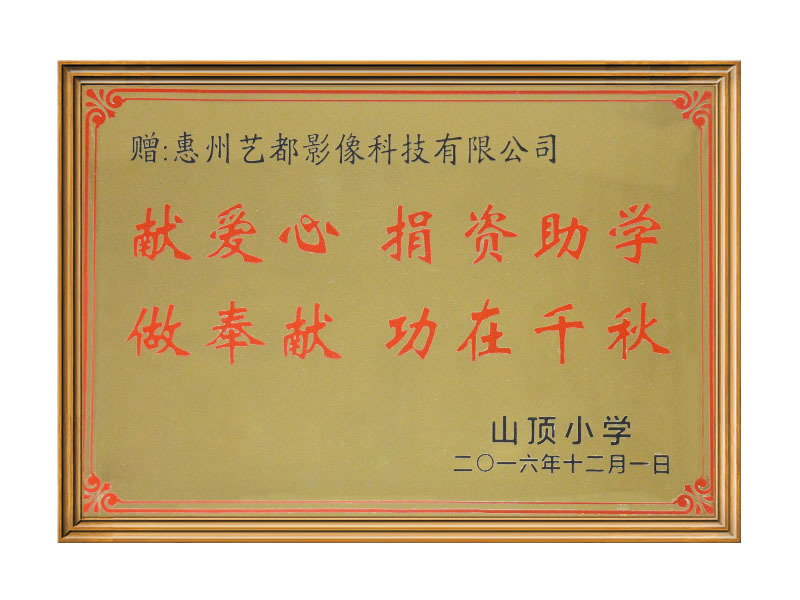 赠:惠州艺都影像科技有限公司
献爱心 捐资助学
做奉献 功在千秋
山顶小学
二〇一六年十二月一日